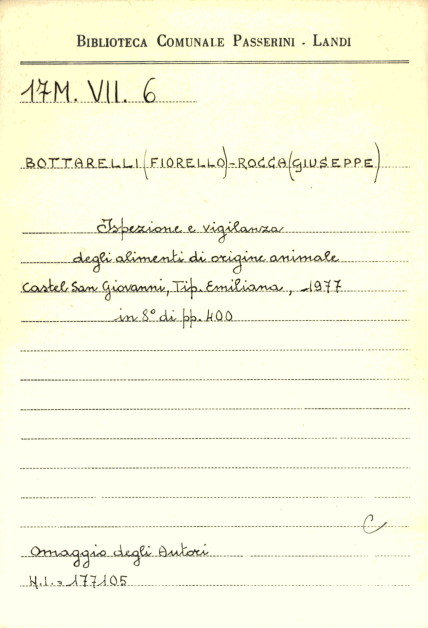 BIBLIOTECA COMUNALE PASSERINI - LANDI
17M. VII. 6
BOTTARELLI (FIORELLO) - ROCCA (GIUSEPPE)
Ispezione e vigilanza
degli alimenti di origine animale
Castel San Giovanni, Tip. Emiliana, 1977
in 8° di pp. 400
C
Omaggio degli Autori
N.I. = 177105